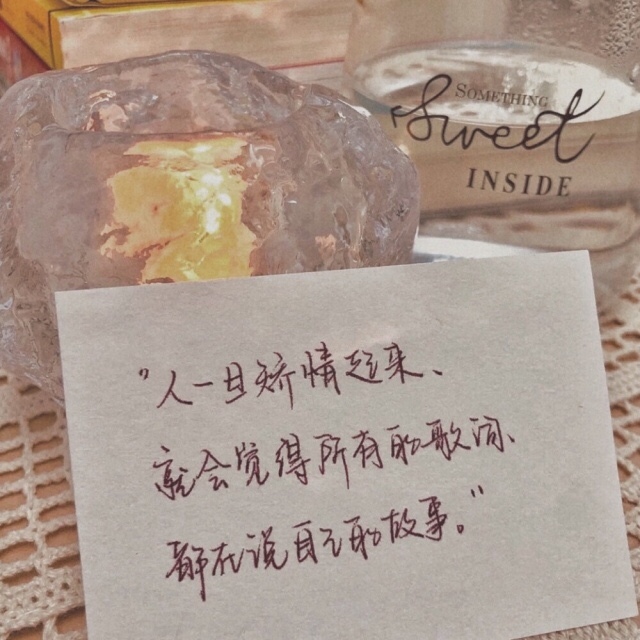 SOMETHING
Sweet
INSIDE
"人一旦矫情起来、
就会觉得所有的歌词、
都在说自己的故事。"